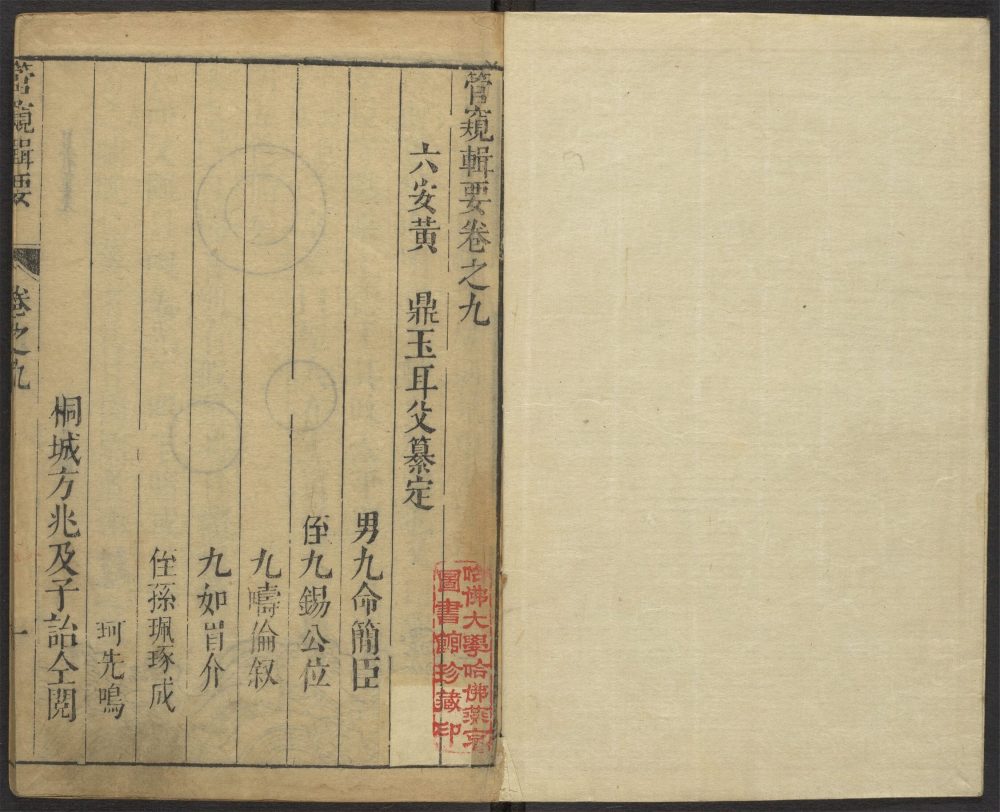 管窺輯要卷之九
六安黃 鼎玉耳父纂定
男九命簡臣
侄九錫公位
九疇倫叙
九如肯介
侄孫珮琢成
珂先鳴
桐城方兆及子詒仝閱
管窺輯要 卷之九 一
哈佛大學哈佛燕京
圖書館珍藏印